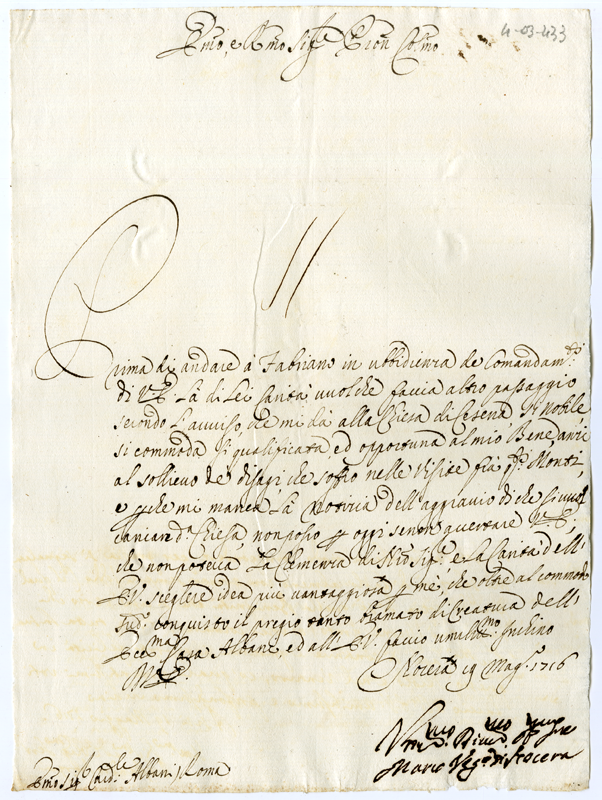 Emo, e Rmo Sigre Pron Colmo
4-03-433
Prima di andare à Fabriano in ubbidienza de Comandamti
di V.E. La di Lei Carità vuol che faccia altro passaggio
secondo l'avviso, che mi dà alla Chiesa di Cesena, sì nobile,
sì commoda, sì qualificata ed opportuna al mio Bene, anzi
al sollievo de disagi che soffro nelle Visite frà qti Monti,
e pche mi manca la notizia dell'aggravio di che si vuol
caricar da Chiesa, non posso p oggi senon accertare V.E.,
che non poteva la Clemenza di Nro Sigre e La Carità dell'
E.V. scegliere idea più vantaggiosa p me, che oltre al commodo
sud. conquisto il pregio tanto bramato di Creatura dell'
Eccma Casa Albani, ed all' E.V. faccio umilmo Inchino
Nocera 19 Magg. 1716
Marco Vesc. di Nocera
Emo Sigr Cardle Albani, Roma